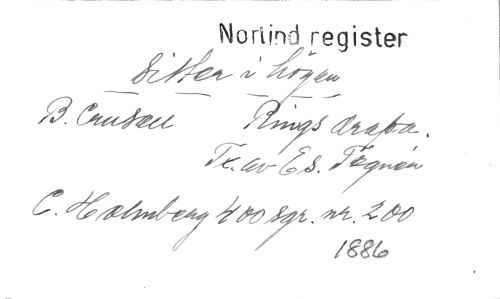 Norlind register
Sitter i högen
B. Crusell Rings drapa.
Tx. av Es. Tegnér
C. Holmberg 400 sgr. nr. 200
1886